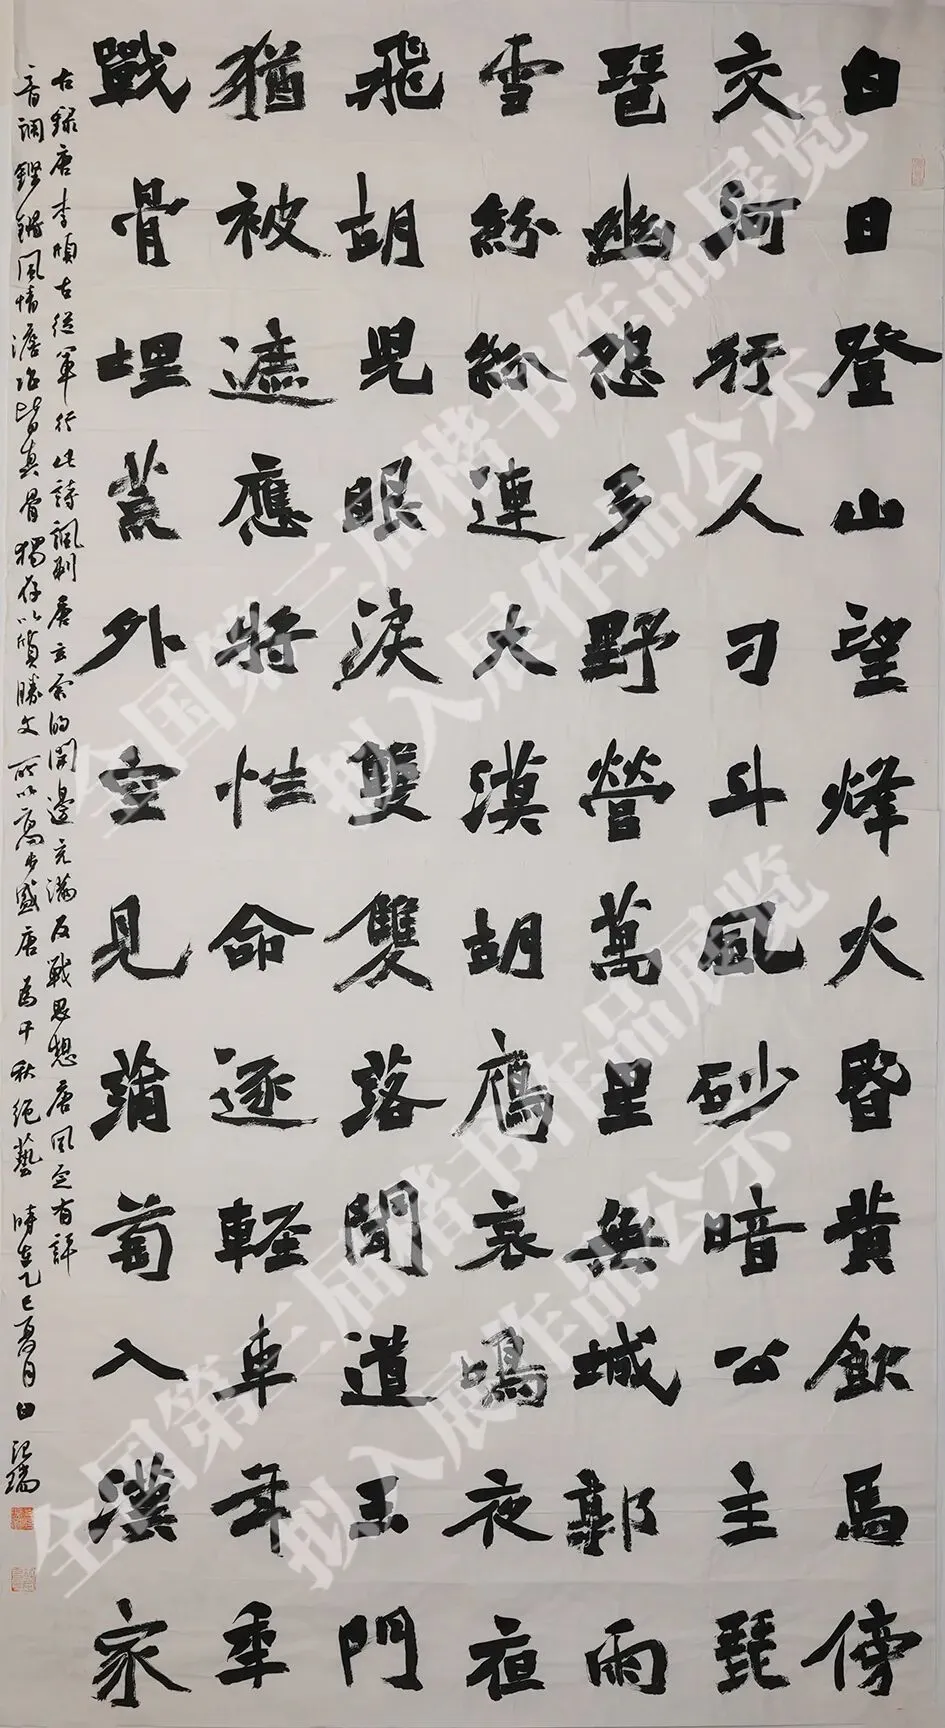 白日登山望烽火昏黄飲馬傍
交河行人刁斗風砂暗公主琵
琶幽怨多野營萬里無城郭雨
雪紛紛連大漠胡鴈哀鳴夜夜
飛胡兒眼淚雙雙落聞道玉門
猶被遮應將性命逐輕車年年
戰骨埋荒外空見蒲萄入漢家
右録唐李頎古從軍行此詩諷刺唐玄宗的開邊充滿反戰思想唐風定有評
音調鏗鏘風情澹冶皆真骨獨存以質勝文所以高步盛唐為千秋絕藝 時在乙巳夏月
全国第三届楷书作品展览
拟入展作品公示
全国第三届楷书作品展览
拟入展作品公示